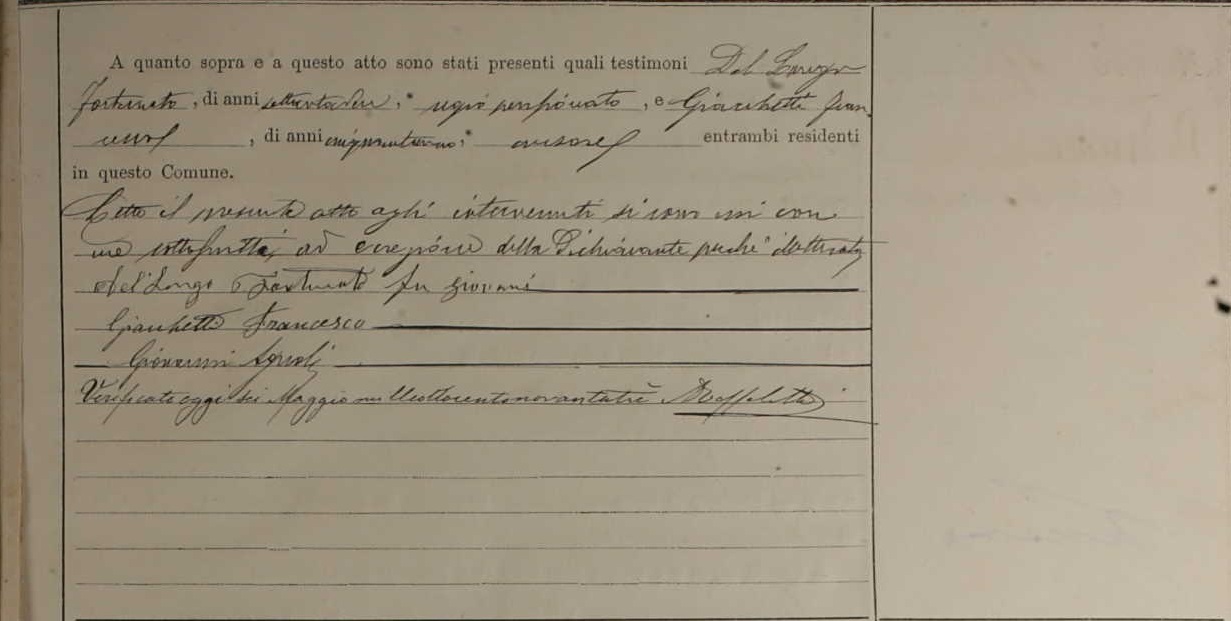 A quanto sopra e a questo atto sono stati presenti quali testimoni Del Longo
Fortunato, di anni settantadue, regio pensionato, e Giacchetti Fran
cesco, di anni cinquantuno, entrambi residenti
in questo Comune.
Letto il presente atto agli intervenuti si sono essi con
me sottoscritti, ad eccezione della Dichiarante perché illetterata
Del Longo Fortunato fu Giovanni
Giacchetti Francesco
Giovanni
Verificato oggi sei Maggio milleottocentonovantatrè